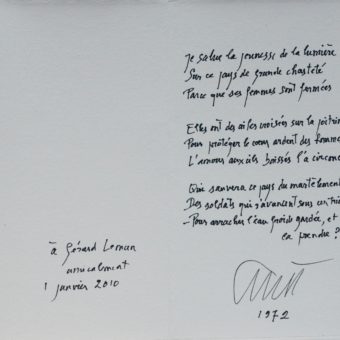 à Gérard Lemun
amicalement
1 janvier 2010
Je salue la jeunesse de la lumière
Sur ce pays de grande chasteté
Parce que ses femmes sont fermées
Elles ont des ailes croisées sur la poitrine
Pour protéger le cœur ardent des femmes
L'amour aux cils baissés l'a
Qui sauvera ce pays du martèlement
Des soldats qui s'avancent sous
- Pour arracher l'eau froide gardée, et
la prendre ?
1972